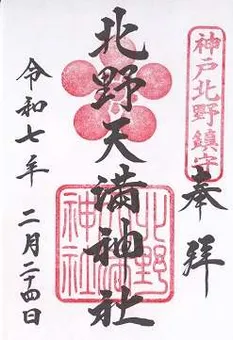 神戸北野鎮守
奉拝
北野天満神社
北野天満神社
令和七年 二月二十四日